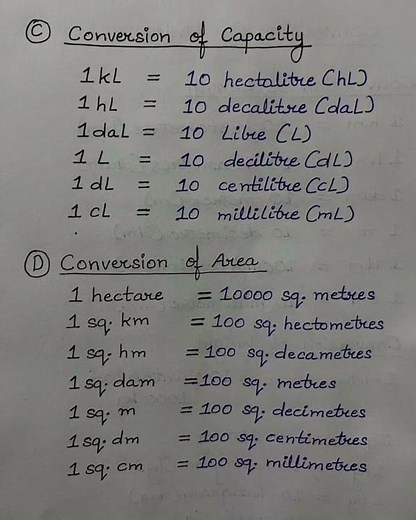 Ⓒ Conversion of Capacity
1 kL = 10 hectolitre (hL)
1 hL = 10 decalitre (daL)
1 daL = 10 Litre (L)
1 L = 10 decilitre (dL)
1 dL = 10 centilitre (cL)
1 cL = 10 millilitre (mL)
Ⓓ Conversion of Area
1 hectare = 10000 sq. metres
1 sq. km = 100 sq. hectometres
1 sq. hm = 100 sq. decametres
1 sq. dam = 100 sq. metres
1 sq. m = 100 sq. decimetres
1 sq. dm = 100 sq. centimetres
1 sq. cm = 100 sq. millimetres